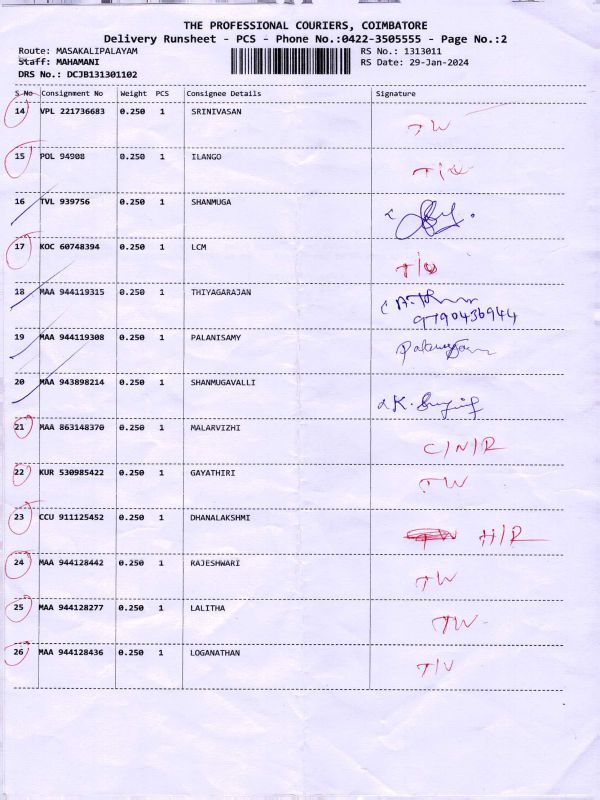 THE PROFESSIONAL COURIERS, COIMBATORE
Delivery Runsheet - PCS - Phone No.:0422-3505555 - Page No.:2
Route: MASAKALIPALAYAM RS No.: 1313011
Staff: MAHAMANI RS Date: 29-Jan-2024
DRS No.: DCJB131301102
S No Consignment No Weight PCS Consignee Details Signature
14 VPL 221736683 0.250 1 SRINIVASAN TW
15 POL 94908 0.250 1 ILANGO
16 TVL 939756 0.250 1 SHANMUGA
17 KOC 60748394 0.250 1 LCM
18 MAA 944119315 0.250 1 THIYAGARAJAN
9790436944
19 MAA 944119308 0.250 1 PALANISAMY
20 MAA 943898214 0.250 1 SHANMUGAVALLI
21 MAA 863148370 0.250 1 MALARVIZHI C/N/R
22 KUR 530985422 0.250 1 GAYATHIRI TW
23 CCU 911125452 0.250 1 DHANALAKSHMI H/R
24 MAA 944128442 0.250 1 RAJESHWARI TW
25 MAA 944128277 0.250 1 LALITHA TW
26 MAA 944128436 0.250 1 LOGANATHAN